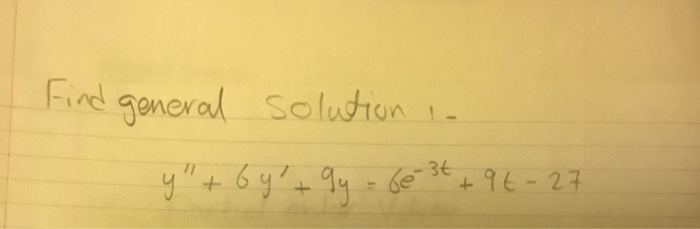 Find general solution :-
y" + 6y' + 9y = 6e^-3t + 9t - 27